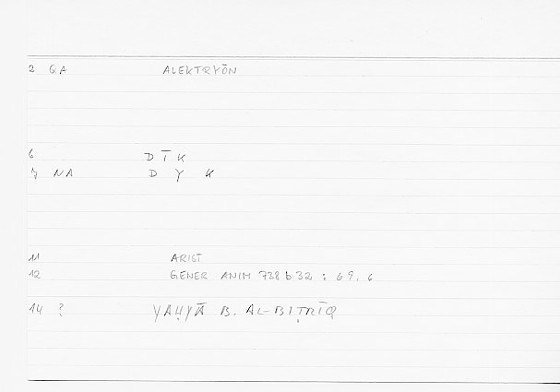 2 GA ALEKTRYŌN
6 D Ī K
7 NA D Y K
11 ARIST
12 GENER ANIM 728 b 32 : 69.6
14 ? YAḤYĀ B. AL-BIṬRĪQ